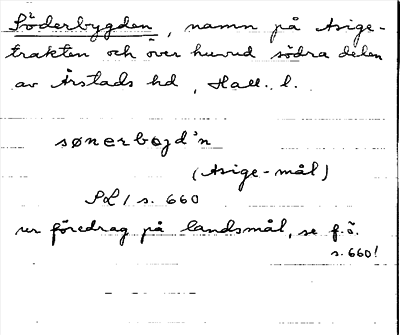 Söderbygden, namn på Asige-
trakten och över huvud södra delen
av Årstads hd, Hall. l.
sønerbojd'n
(Asige-mål)
SL 1 s. 660
ur föredrag på landsmål, se f.ö.
s. 660!